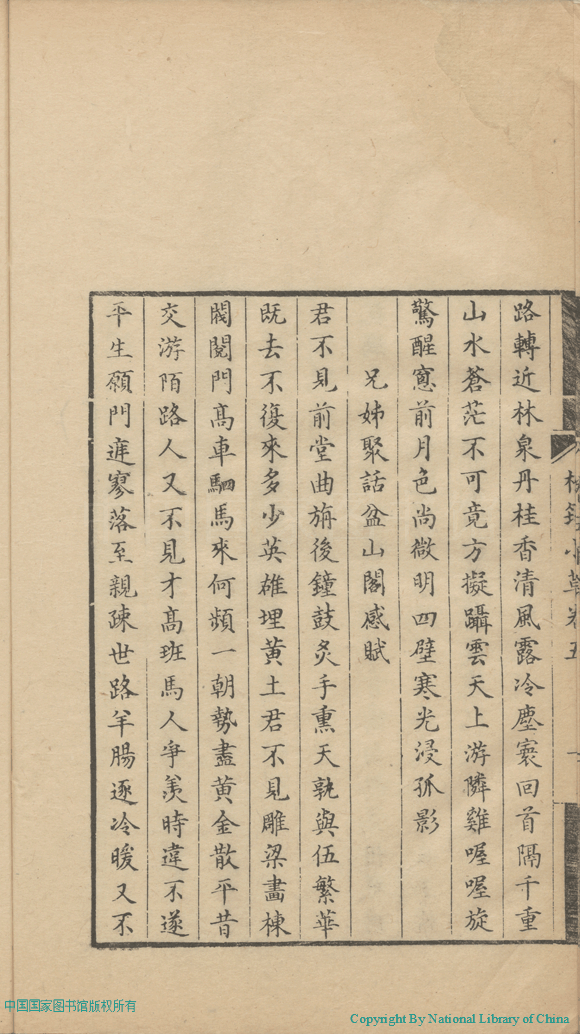 路轉近林泉丹桂香清風露冷塵寰回首隔千重
山水蒼茫不可竟方擬躡雲天上游隣雞喔喔旋
驚醒窻前月色尚微明四壁寒光浸孤影
兄姊聚話盆山閣感賦
君不見前堂曲旃後鐘鼓炙手熏天孰與伍繁華
既去不復來多少英雄埋黄土君不見雕梁畫棟
閥閱門髙車駟馬來何頻一朝勢盡黄金散平昔
交游陌路人又不見才髙班馬人爭羨時違不遂
平生願門庭寥落至親疎世路羊腸逐冷暖又不
中国国家图书馆版权所有
Copyright By National Library of China